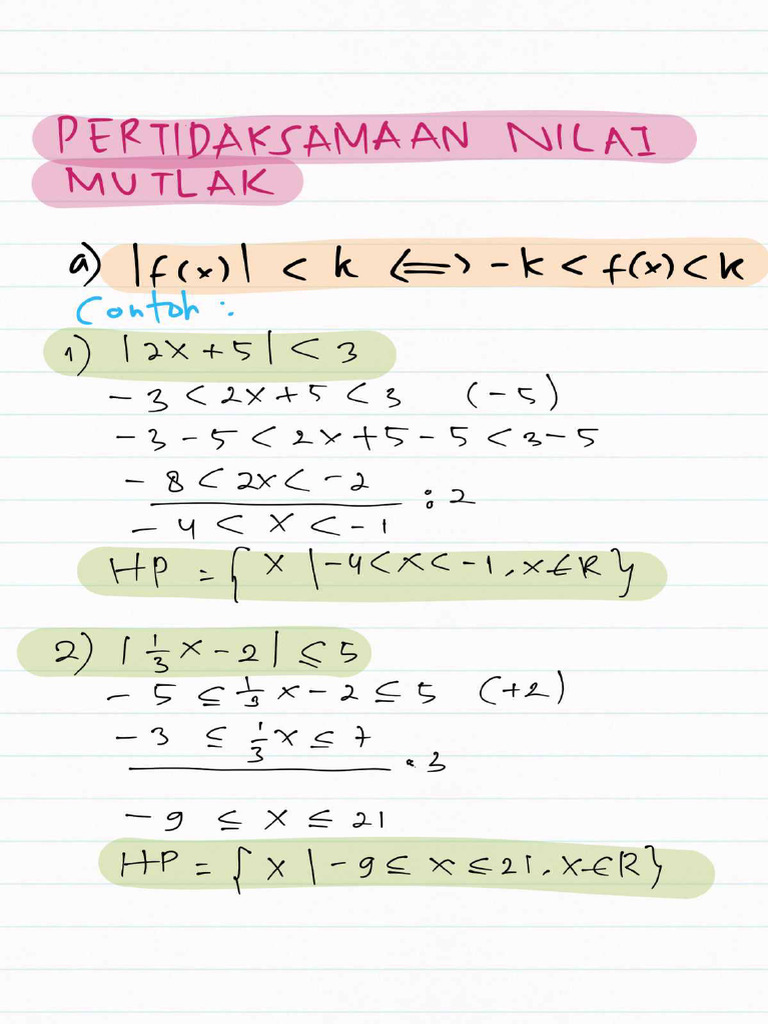 PERTIDAKSAMAAN NILAI
MUTLAK
a) |f(x)| < k <=> -k < f(x) < k
Contoh :
1) |2x + 5| < 3
-3 < 2x + 5 < 3 (-5)
-3 - 5 < 2x + 5 - 5 < 3 - 5
-8 < 2x < -2
: 2
-4 < x < -1
HP = { x | -4 < x < -1, x ∈ R }
2) | 1/3 x - 2 | ≤ 5
-5 ≤ 1/3 x - 2 ≤ 5 (+2)
-3 ≤ 1/3 x ≤ 7
. 3
-9 ≤ x ≤ 21
HP = { x | -9 ≤ x ≤ 21, x ∈ R }